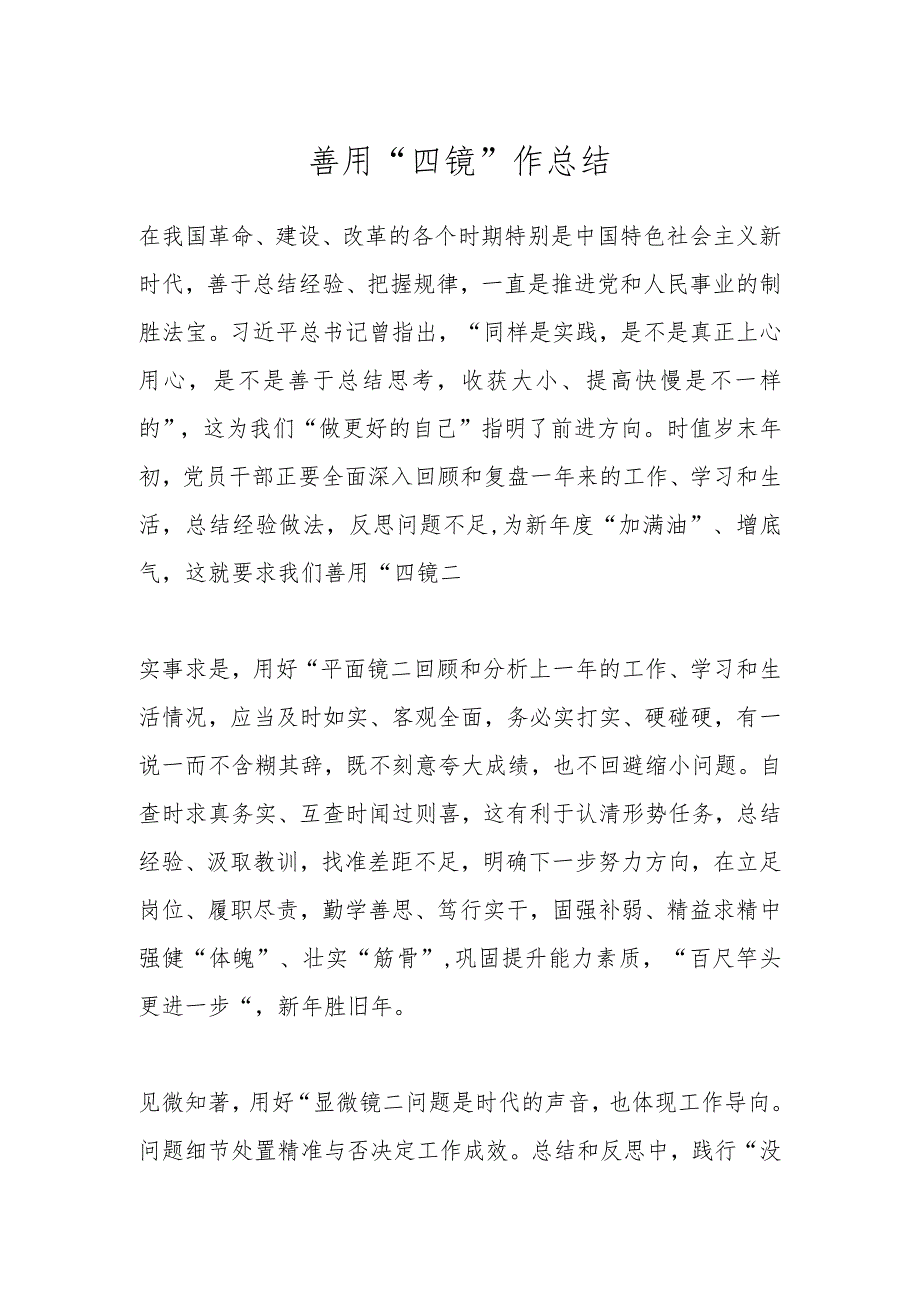 善用“四镜”作总结
在我国革命、建设、改革的各个时期特别是中国特色社会主义新
时代，善于总结经验、把握规律，一直是推进党和人民事业的制
胜法宝。习近平总书记曾指出，“同样是实践，是不是真正上心
用心，是不是善于总结思考，收获大小、提高快慢是不一样
的”，这为我们“做更好的自己”指明了前进方向。时值岁末年
初，党员干部正要全面深入回顾和复盘一年来的工作、学习和生
活，总结经验做法，反思问题不足,为新年度“加满油”、增底
气，这就要求我们善用“四镜二
实事求是，用好“平面镜二回顾和分析上一年的工作、学习和生
活情况，应当及时如实、客观全面，务必实打实、硬碰硬，有一
说一而不含糊其辞，既不刻意夸大成绩，也不回避缩小问题。自
查时求真务实、互查时闻过则喜，这有利于认清形势任务，总结
经验、汲取教训，找准差距不足，明确下一步努力方向，在立足
岗位、履职尽责，勤学善思、笃行实干，固强补弱、精益求精中
强健“体魄”、壮实“筋骨”,巩固提升能力素质，“百尺竿头
更进一步“，新年胜旧年。
见微知著，用好“显微镜二问题是时代的声音，也体现工作导向。
问题细节处置精准与否决定工作成效。总结和反思中，践行“没